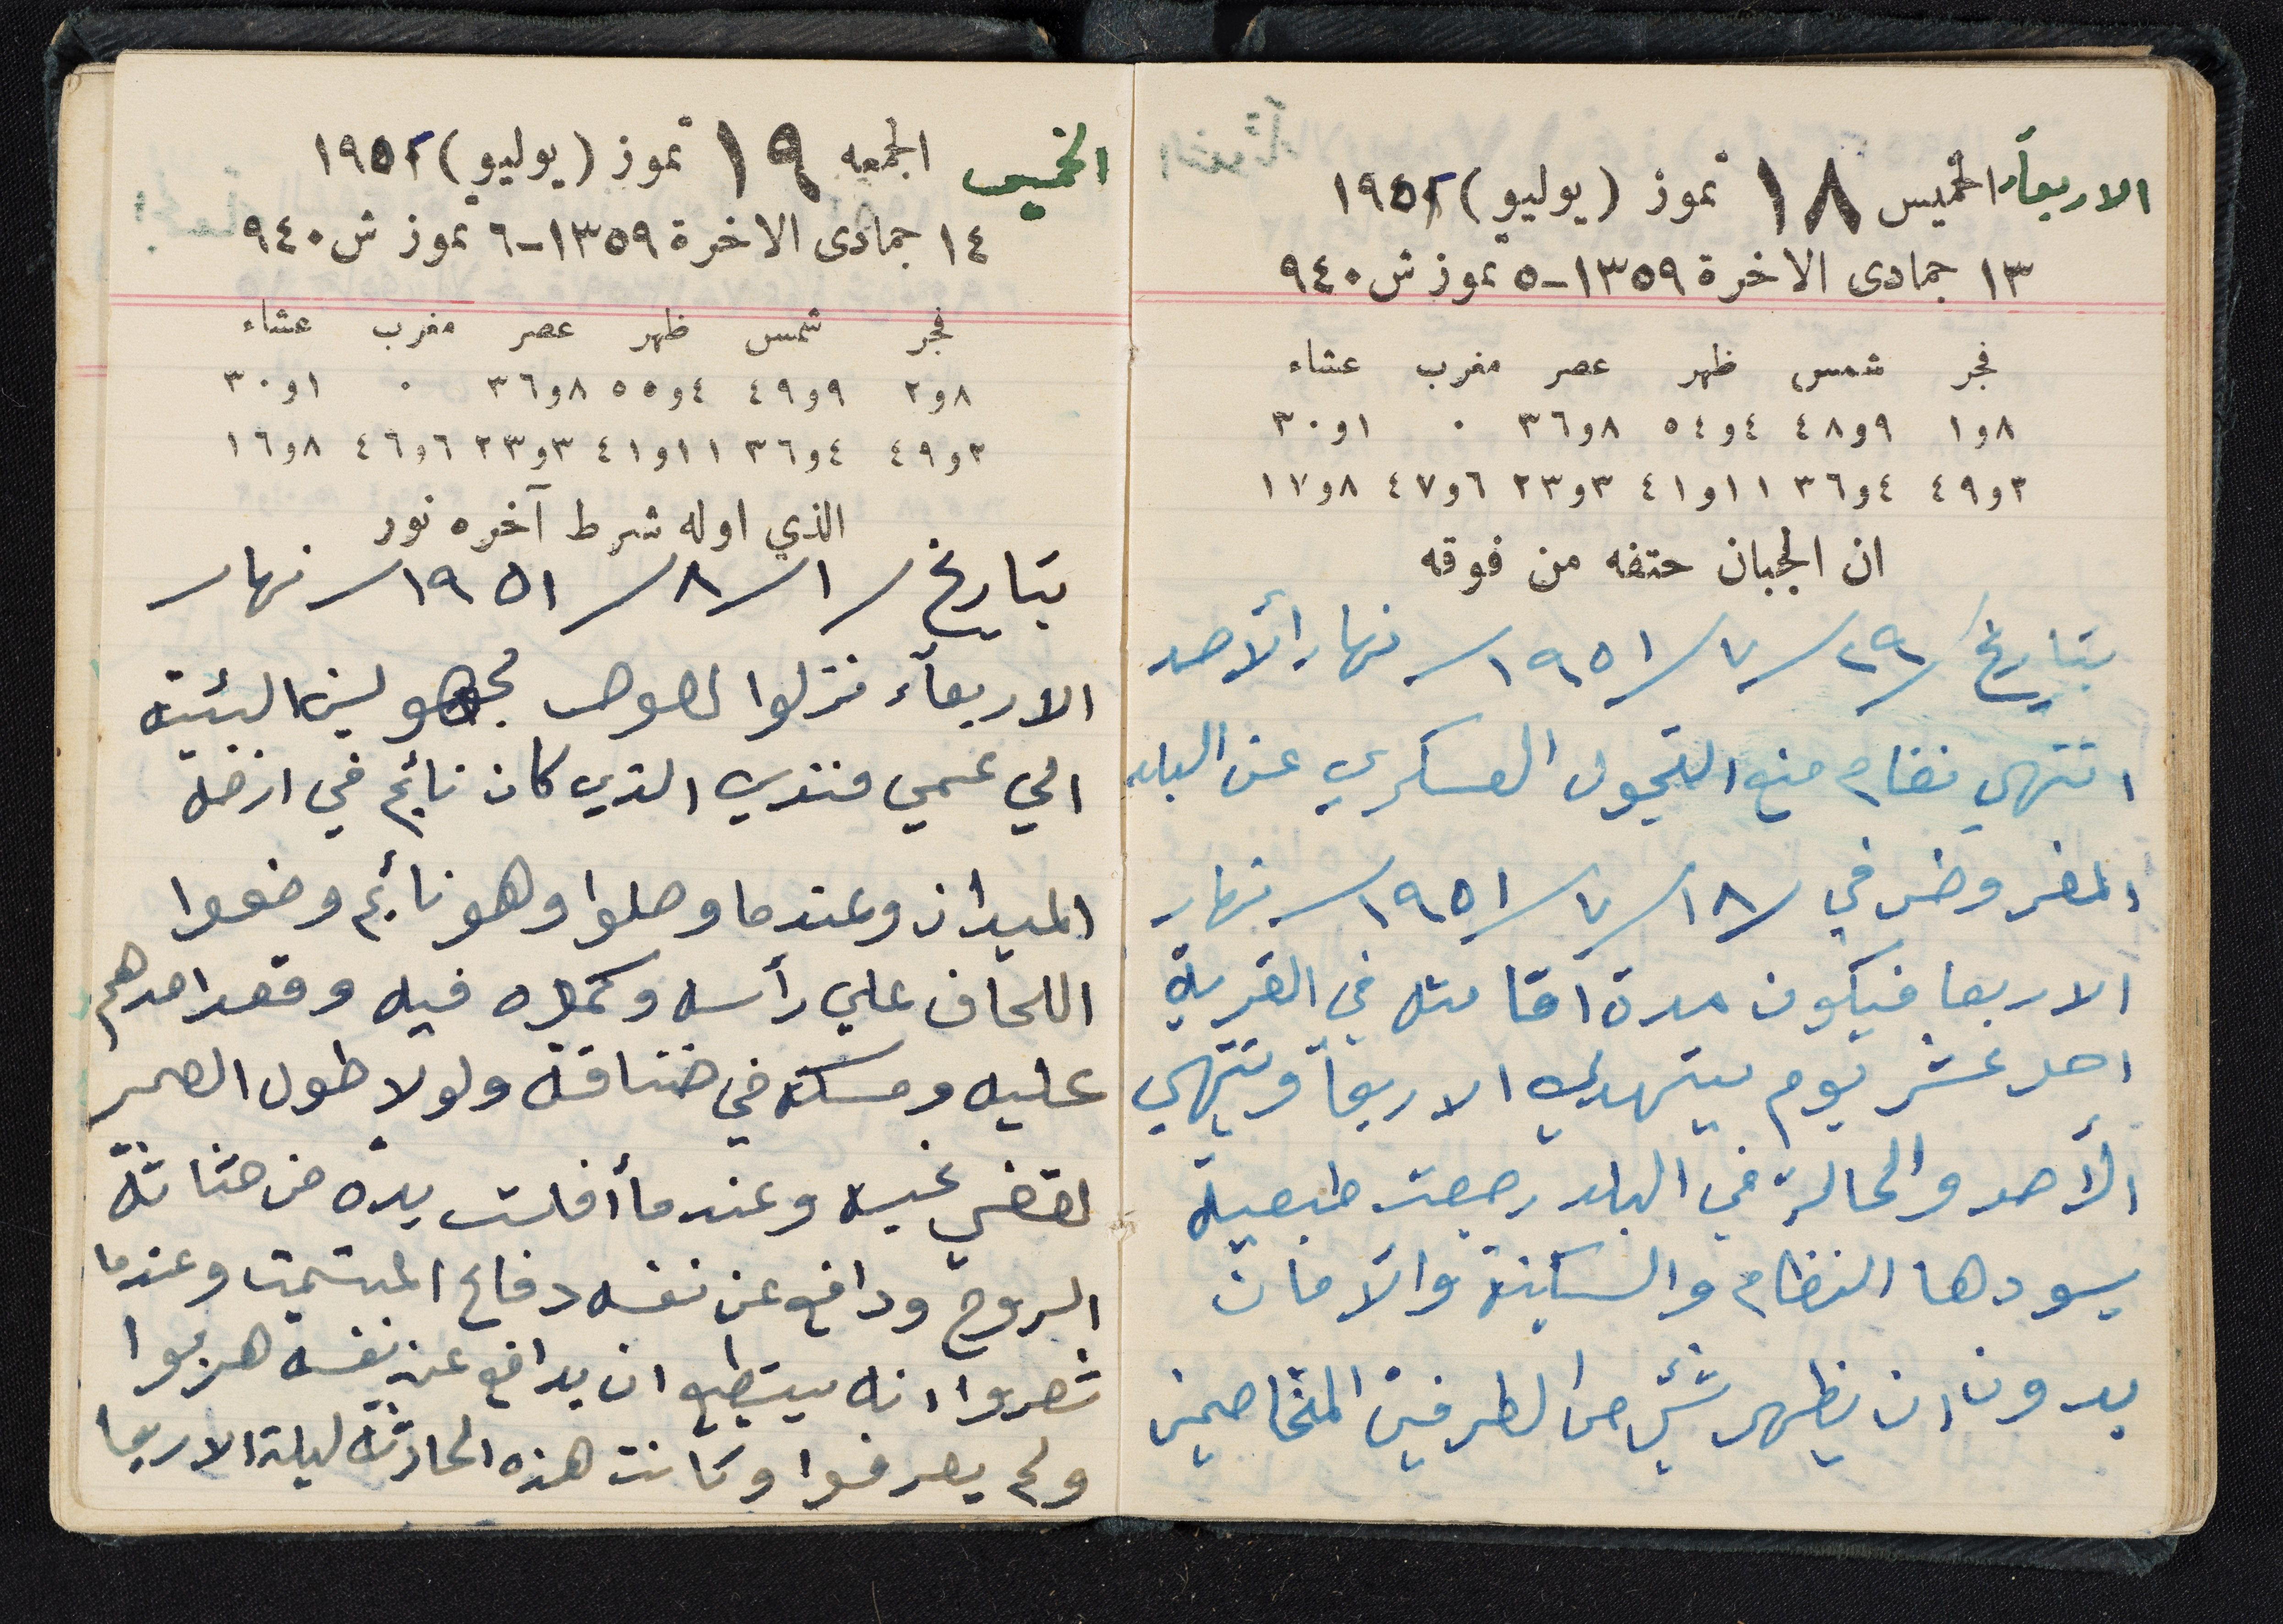 الاربعاء الخميس ١٨ تموز (يوليو) ١٩٥١
١٣ جمادى الاخرة ١٣٥٩-٥ تموز ش ٩٤٠
فجر شمس ظهر عصر مغرب عشاء
٨و١ ٩و٤٨ ٤و٥٤ ٨و٣٦ ٠ ١و٣٠
٢و٤٩ ٤و٣٦ ١١و٤١ ٣و٢٣ ٦و٤٧ ٨و١٧
ان الجبان حتفه من فوقه
بتاريخ /٢٩/٧/١٩٥١/ نهار الأحد
انتهى نظام منع التجول العسكري عن البلد
المفروض في /١٨/٧/١٩٥١/ نهار
الاربعا فيكون مدة اقامته في القرية
احد عشر يوم يبتهدي الاربعآ وينتهي
الأحد والحالة في البلد رجعت طبعية
يسودها النظام والسكينة والآمان
بدون ان يظهر شئ من الطرفين المتخاصمين
الخميس الجمعه ١٩ تموز (يوليو) ١٩٥١
١٤ جمادى الاخرة ١٣٥٩-٦ تموز ش ٩٤٠
فجر شمس ظهر عصر مغرب عشاء
٨و٢ ٩و٤٩ ٤و٥٥ ٨و٣٦ ٠ ١و٣٠
٢و٤٩ ٤و٣٦ ١١و٤١ ٣و٢٣ ٦و٤٦ ٨و١٦
الذي اوله شرط آخره نور
بتاريخ /١/٨/١٩٥١/ نهار
الاربعآء نزلوا لصوص مجهولين البئية
الي عمي فندي الذي كان نائم في ارضة
الميدان وعندما وصلوا وهو نائم وضعوا
اللحاف علي رأسه وكمره فيه وقعد احدهم
عليه ومسكه في خناقه ولولا طول العمر
لقضي نحبه وعندما أفلت يده من حثاثة
الروح ودافع عن نفسه دفاع المستميت وعندما
شعروا انه يستطيع ان يدافع عن نفسه هربوا
ولم يعرفوا وكانت هذه الحادثة ليلة الاربعا